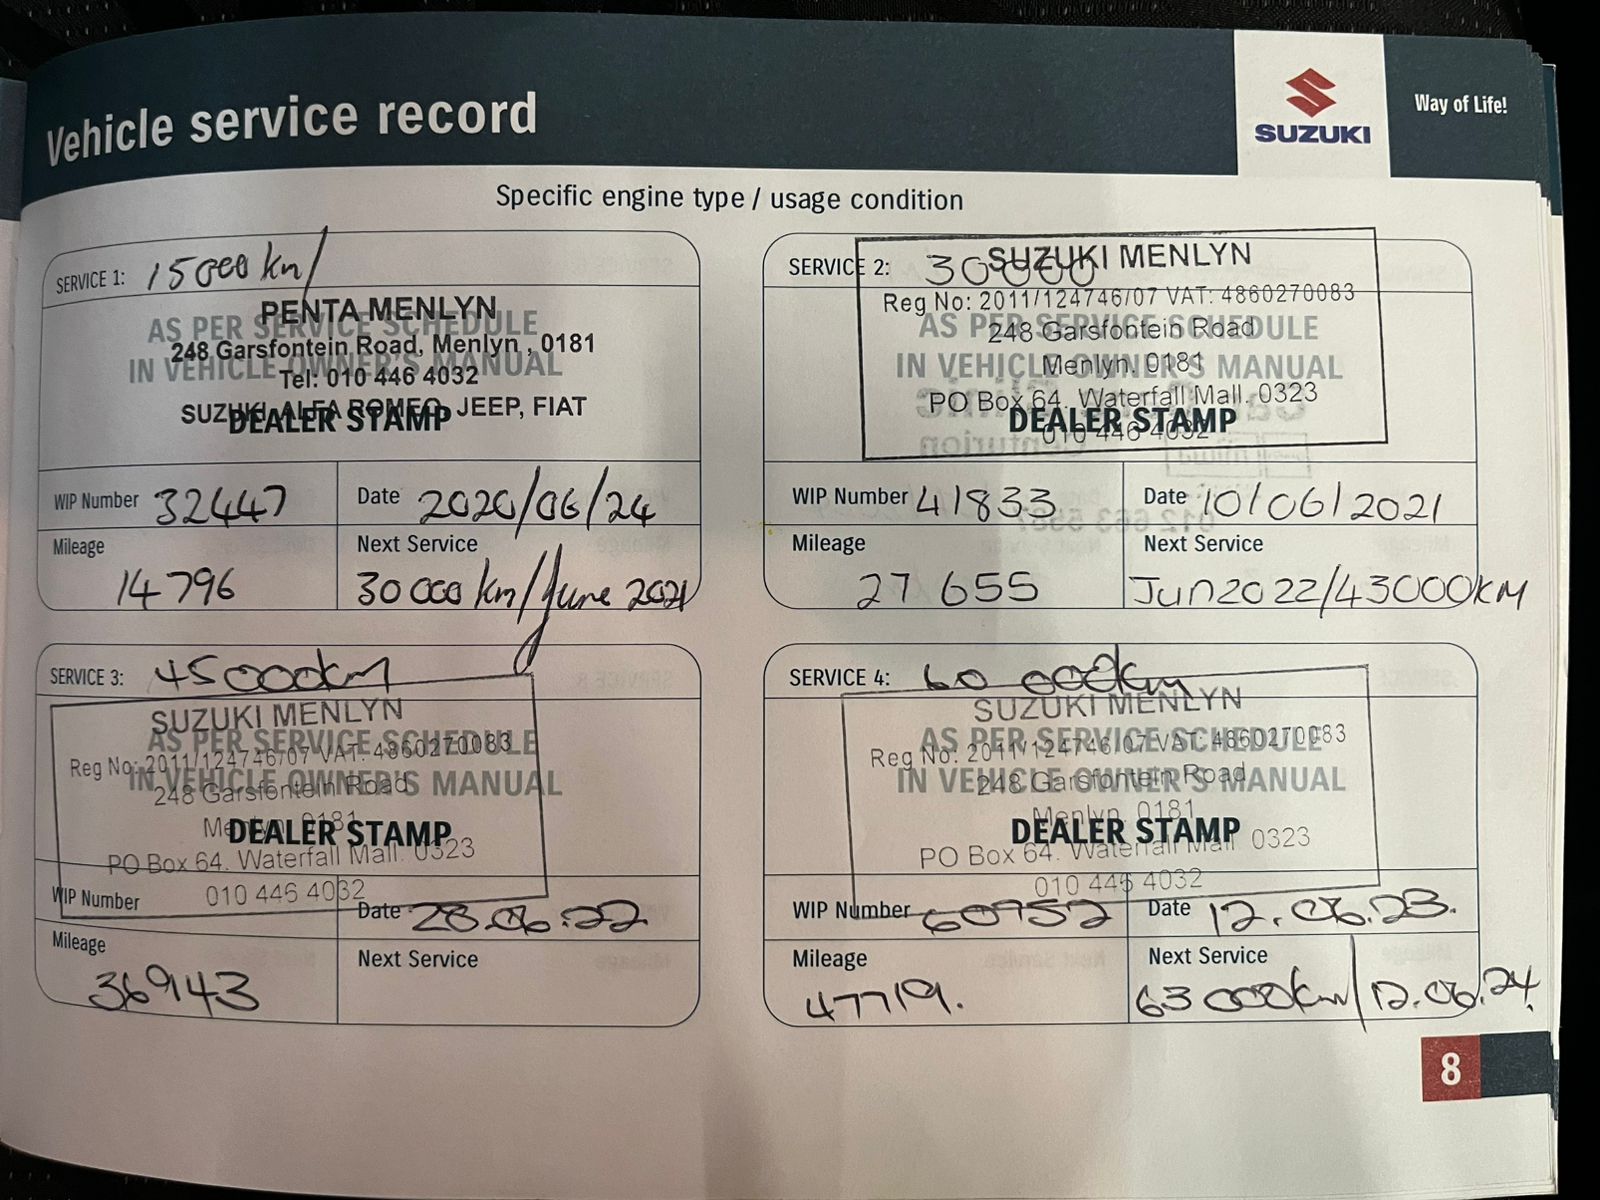 Vehicle service record
SUZUKI
Way of Life!
Specific engine type / usage condition
SERVICE 1: 15000 km/
PENTA MENLYN
AS PER SERVICE SCHEDULE
248 Garsfontein Road, Menlyn, 0181
IN VEHICLE OWNER'S MANUAL
Tel: 010 446 4032
SUZUKI, ALFA ROMEO, JEEP, FIAT
DEALER STAMP
WIP Number 32447
Date 2020/06/24
Mileage
14796
Next Service
30 000 km/June 2021
SERVICE 2: 30000
SUZUKI MENLYN
Reg No: 2011/124746/07 VAT: 4860270083
AS PER SERVICE SCHEDULE
248 Garsfontein Road
IN VEHICLE OWNER'S MANUAL
Menlyn. 0181
PO Box 64. Waterfall Mall. 0323
DEALER STAMP
010 446 4032
WIP Number 41833
Date 10/06/2021
Mileage
27 655
Next Service
Jun2022/43000KM
SERVICE 3: 45000km
SUZUKI MENLYN
AS PER SERVICE SCHEDULE
Reg No: 2011/124746/07 VAT: 4860270083
IN VEHICLE OWNER'S MANUAL
248 Garsfontein Road
Menlyn. 0181
DEALER STAMP
PO Box 64. Waterfall Mall. 0323
010 446 4032
WIP Number
Date 28.06.22
Mileage
369143
Next Service
SERVICE 4: 60 000km
SUZUKI MENLYN
AS PER SERVICE SCHEDULE
Reg No: 2011/124746/07 VAT: 4860270083
IN VEHICLE OWNER'S MANUAL
248 Garsfontein Road
Menlyn. 0181
DEALER STAMP
PO Box 64. Waterfall Mall 0323
010 446 4032
WIP Number 60952
Date 12.06.23.
Mileage
47719.
Next Service
63 000km/12.06.24.
8